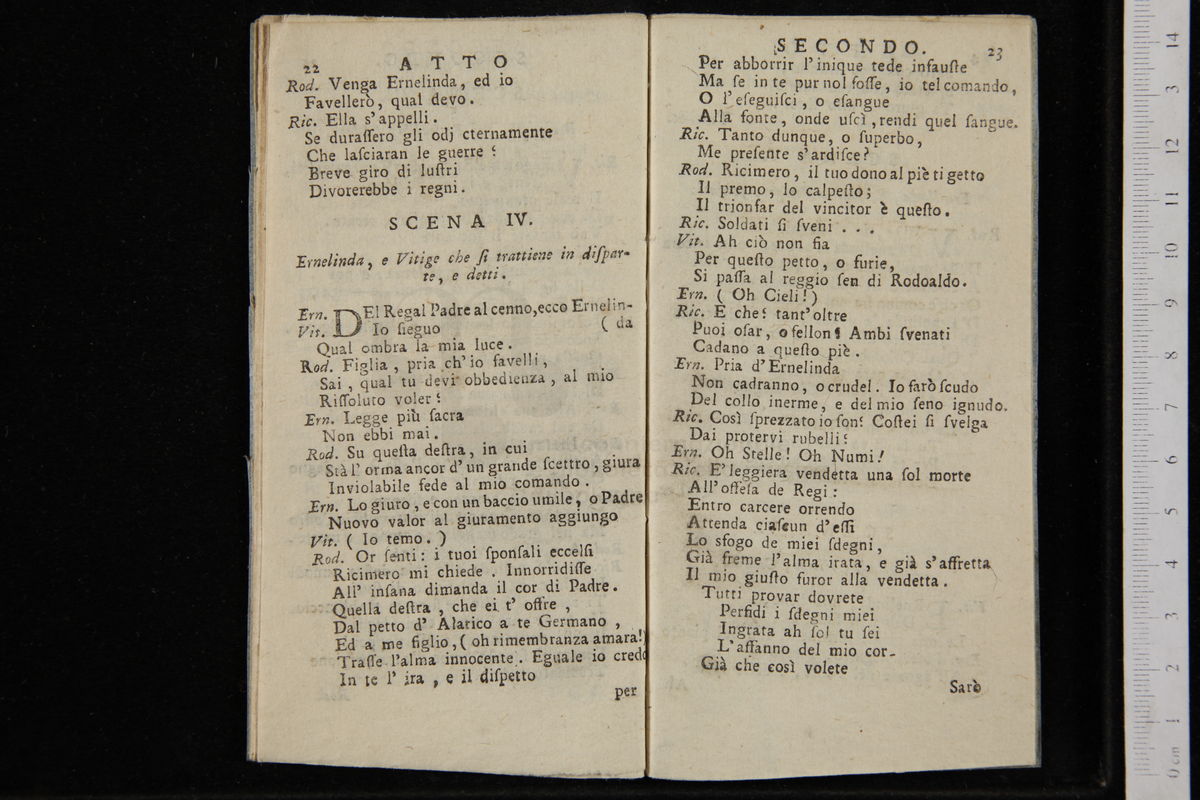 22 ATTO
Rod. Venga Ernelinda, ed io
Favellerò, qual devo.
Ric. Ella s'appelli.
Se duraſſero gli odj cternamente
Che laſciaran le guerre?
Breve giro di luſtri
Divorerebbe i regni.
SCENA IV.
Ernelinda, e Vitige che ſi trattiene in diſpar-
te, e detti.
Ern. DEl Regal Padre al cenno, ecco Ernelin-
Vit. Io ſieguo ( da
Qual ombra la mia luce.
Rod. Figlia, pria ch'io favelli,
Sai, qual tu devi obbedienza, al mio
Riſſoluto voler?
Ern. Legge più ſacra
Non ebbi mai.
Rod. Su queſta deſtra, in cui
Stà l'orma ancor d'un grande ſcettro, giura
Inviolabile fede al mio comando.
Ern. Lo giuro, e con un baccio umile, o Padre
Nuovo valor al giuramento aggiungo
Vit. ( Io temo. )
Rod. Or ſenti: i tuoi ſponſali eccelſi
Ricimero mi chiede. Innorridiſſe
All' inſana dimanda il cor di Padre.
Quella deſtra, che ei t' offre,
Dal petto d' Alarico a te Germano,
Ed a me figlio, ( oh rimembranza amara!)
Traſſe l'alma innocente. Eguale io credo
In te l' ira, e il diſpetto
per
SECONDO. 23
Per abborrir l'inique tede infauſte
Ma ſe in te pur nol foſſe, io tel comando,
O l'eſeguiſci, o eſangue
Alla fonte, onde uſcì, rendi quel ſangue.
Ric. Tanto dunque, o ſuperbo,
Me preſente s'ardiſce?
Rod. Ricimero, il tuo dono al piè ti getto
Il premo, lo calpeſto;
Il trionfar del vincitor è queſto.
Ric. Soldati ſi ſveni . . .
Vit. Ah ciò non ſia
Per queſto petto, o furie,
Si paſſa al reggio ſen di Rodoaldo.
Ern. ( Oh Cieli! )
Ric. E che? tant'oltre
Puoi oſar, o fellon? Ambi ſvenati
Cadano a queſto piè.
Ern. Pria d'Ernelinda
Non cadranno, o crudel. Io farò ſcudo
Del collo inerme, e del mio ſeno ignudo.
Ric. Così ſprezzato io ſon? Coſtei ſi ſvelga
Dai protervi rubelli?
Ern. Oh Stelle! Oh Numi!
Ric. E' leggiera vendetta una ſol morte
All'offeſa de Regi:
Entro carcere orrendo
Attenda ciaſcun d'eſſi
Lo sfogo de miei ſdegni,
Già freme l'alma irata, e già s'affretta
Il mio giuſto furor alla vendetta.
Tutti provar dovrete
Perfidi i ſdegni miei
Ingrata ah ſol tu ſei
L'affanno del mio cor.
Già che così volete
Sarò
14
3
12
11
10
9
8
7
6
5
4
3
2
1
0 cm